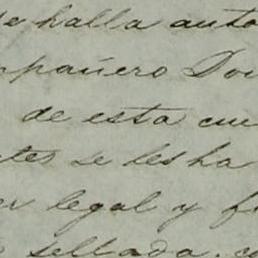 se halla auto
mpañero Don
de esta cue
tes se les ha
er legal y fi
sellada, co